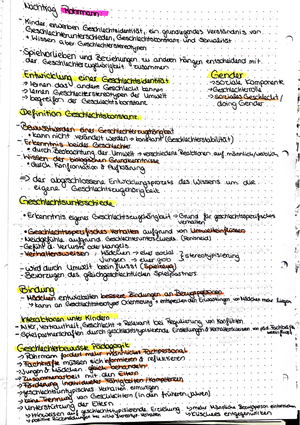 Nachtrag Rohrmann:
• Kinder erwerben Geschlechtsidentität, ein grundlegendes Verständnis von
Geschlechterunterschieden, Geschlechtskonstanz und Sexualität
+ Wissen über Geschlechterstereotypen
- Spielvorlieben und Beziehungen zu anderen hängen entscheidend mit
der Geschlechtszugehörigkeit zusammen
Entwicklung einer Geschlechtsidentität
→ lernen, das 2 andere Geschlecht kennen
→ lernen Geschlechterstereotypen der Umwelt
→ begreifen der Geschlechtskonstanz
Gender
→ soziale Komponente
→ Geschlechterrolle
→ soziales Geschlecht /
doing Gender
Definition Geschlechtskonstanz
Bewusstwerden einer Geschlechtszugehörigkeit
• kann nicht verändert werden → konstant (Geschlechterstabilität)
- Erkenntnis beider Geschlechter
• durch Beobachtung der Umwelt + verschiedene Reaktionen auf männlich/weiblich
- Wissen der biologischen Grundkenntnisse
• durch Konfrontation & Aufklärung
⇒ der abgeschlossene Entwicklungsprozess des Wissens um die
eigene Geschlechtszugehörigkeit
Geschlechtsunterschiede
• Erkenntnis eigene Geschlechtszugehörigkeit → Grund für geschlechtsspezifisches
Verhalten
- Geschlechtsspezifisches Verhalten aufgrund von Umwelteinflüssen
- Neidgefühle aufgrund Geschlechterunterschieds
Gefühl d. Verlusts oder Mangels
- Verhaltensweisen: Mädchen → eher sozial
Jungen → eher
} Stereotypisierung
- wird durch Umwelt beeinflusst
- Bevorzugen des gleichgeschlechtlichen Spielpartners
Bindung
- Mädchen entwickeln bessere Bindungen an Bezugspersonen
• kann an Geschlechtstypischer Orientierung + entsprechen den Erwartungen von Mädchen
Interaktionen unter Kindern
- Alter, Vertrautheit, Geschlecht → Relevant bei Regulierung von Konflikten
- Spielpartnerschaften durch
Geschlechterbewusste Pädagogik
→ Rohrmann fordert mehr männliches Fachpersonal
→ Fachkräfte müssen sich informieren & reflektieren
→ Jungen & Mädchen gleich behandeln
→ Zusammenarbeit mit den Eltern
→ Förderung individueller Fähigkeiten/Kompetenzen
→ geschlechtsuntypisches Verhalten ermutigen
→ eine Trennung von Geschlechtern (in den früheren Jahren)
→ Unterstützung der Eltern
→ Hinweisen auf geschlechtsstypisierende Erziehung
→ mehr männliche Bezugspersonen
→ Klischees